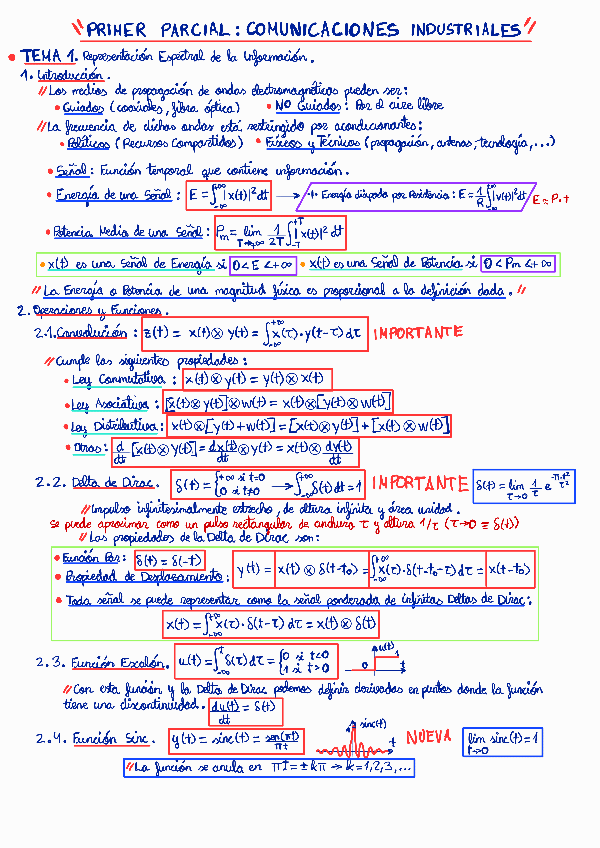 "PRIMER PARCIAL: COMUNICACIONES INDUSTRIALES"
• TEMA 1. Representación Espectral de la Información.
1. Introducción.
// Los medios de propagación de ondas electromagnéticas pueden ser:
• Guiados (coaxiales, fibra óptica) • NO Guiados: Por el aire libre
// La frecuencia de dichas ondas está restringido por acondicionantes:
• Políticos (Recursos Compartidos) • Físicos y Técnicos (propagación, antenas, tecnología, ...)
• Señal: Función temporal que contiene información.
• Energía de una Señal: E = ∫_{-∞}^{+∞} |x(t)|² dt → Energía disipada por Resistencia: E = 1/R ∫_{-∞}^{+∞} |v(t)|² dt E = P·t
• Potencia Media de una Señal: Pm = lim_{T→∞} 1/2T ∫_{-T}^{+T} |x(t)|² dt
• x(t) es una Señal de Energía si 0 < E < +∞ • x(t) es una Señal de Potencia si 0 < Pm < +∞
// La Energía o Potencia de una magnitud física es proporcional a la definición dada. //
2. Operaciones y Funciones.
2.1. Convolución: z(t) = x(t) ⊗ y(t) = ∫_{-∞}^{+∞} x(τ)·y(t-τ) dτ IMPORTANTE
// Cumple las siguientes propiedades:
• Ley Conmutativa: x(t) ⊗ y(t) = y(t) ⊗ x(t)
• Ley Asociativa: [x(t) ⊗ y(t)] ⊗ w(t) = x(t) ⊗ [y(t) ⊗ w(t)]
• Ley Distributiva: x(t) ⊗ [y(t) + w(t)] = [x(t) ⊗ y(t)] + [x(t) ⊗ w(t)]
• Otras: d/dt [x(t) ⊗ y(t)] = dx(t)/dt ⊗ y(t) = x(t) ⊗ dy(t)/dt
2.2. Delta de Dirac. δ(t) = {+∞ si t=0 0 si t≠0 → ∫_{-∞}^{+∞} δ(t) dt = 1 IMPORTANTE δ(t) = lim_{τ→0} 1/τ e^{-πt²/τ²}
// Impulso infinitesimalmente estrecho, de altura infinita y área unidad.
Se puede aproximar como un pulso rectangular de anchura τ y altura 1/τ (τ→0 ≡ δ(t))
// Las propiedades de la Delta de Dirac son:
• Función Par: δ(t) = δ(-t)
• Propiedad de Desplazamiento: y(t) = x(t) ⊗ δ(t-t₀) = ∫_{-∞}^{+∞} x(τ)·δ(t-t₀-τ) dτ = x(t-t₀)
• Toda señal se puede representar como la señal ponderada de infinitas Deltas de Dirac:
x(t) = ∫_{-∞}^{+∞} x(τ)·δ(t-τ) dτ = x(t) ⊗ δ(t)
2.3. Función Escalón. u(t) = ∫_{-∞}^{t} δ(τ) dτ = {0 si t<0 1 si t>0 u(t) 1 0 t
// Con esta función y la Delta de Dirac podemos definir derivadas en puntos donde la función
tiene una discontinuidad. du(t)/dt = δ(t)
2.4. Función Sinc. y(t) = sinc(t) = sen(πt)/πt sinc(t) t NUEVA lim_{t→0} sinc(t) = 1
// La función se anula en πt = ±kπ → k = 1,2,3,...